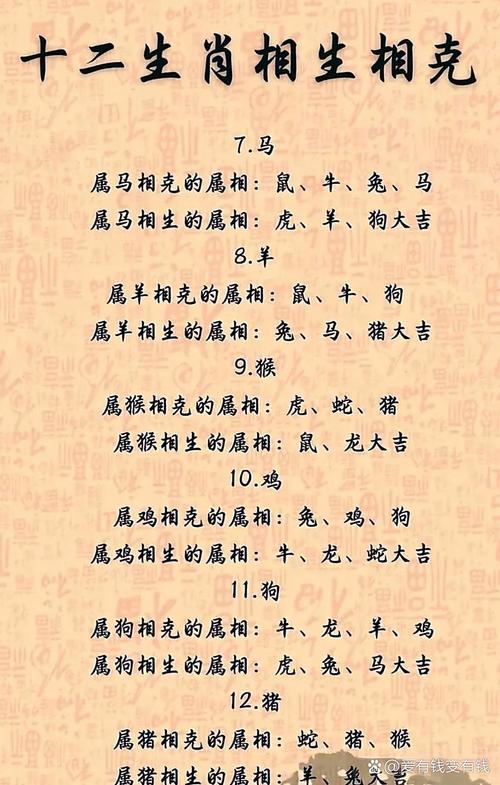 十二生肖相生相克
7.马
属马相克的属相：鼠、牛、兔、马
属马相生的属相：虎、羊、狗大吉
8.羊
属羊相克的属相：鼠、牛、狗
属羊相生的属相：兔、马、猪大吉
9.猴
属猴相克的属相：虎、蛇、猪
属猴相生的属相：鼠、龙大吉
10.鸡
属鸡相克的属相：兔、鸡、狗
属鸡相生的属相：牛、龙、蛇大吉
11.狗
属狗相克的属相：牛、龙、羊、鸡
属狗相生的属相：虎、兔、马大吉
12.猪
属猪相克的属相：蛇、猪、猴
属猪相生的属相：羊、兔大吉
@爱有钱变有钱